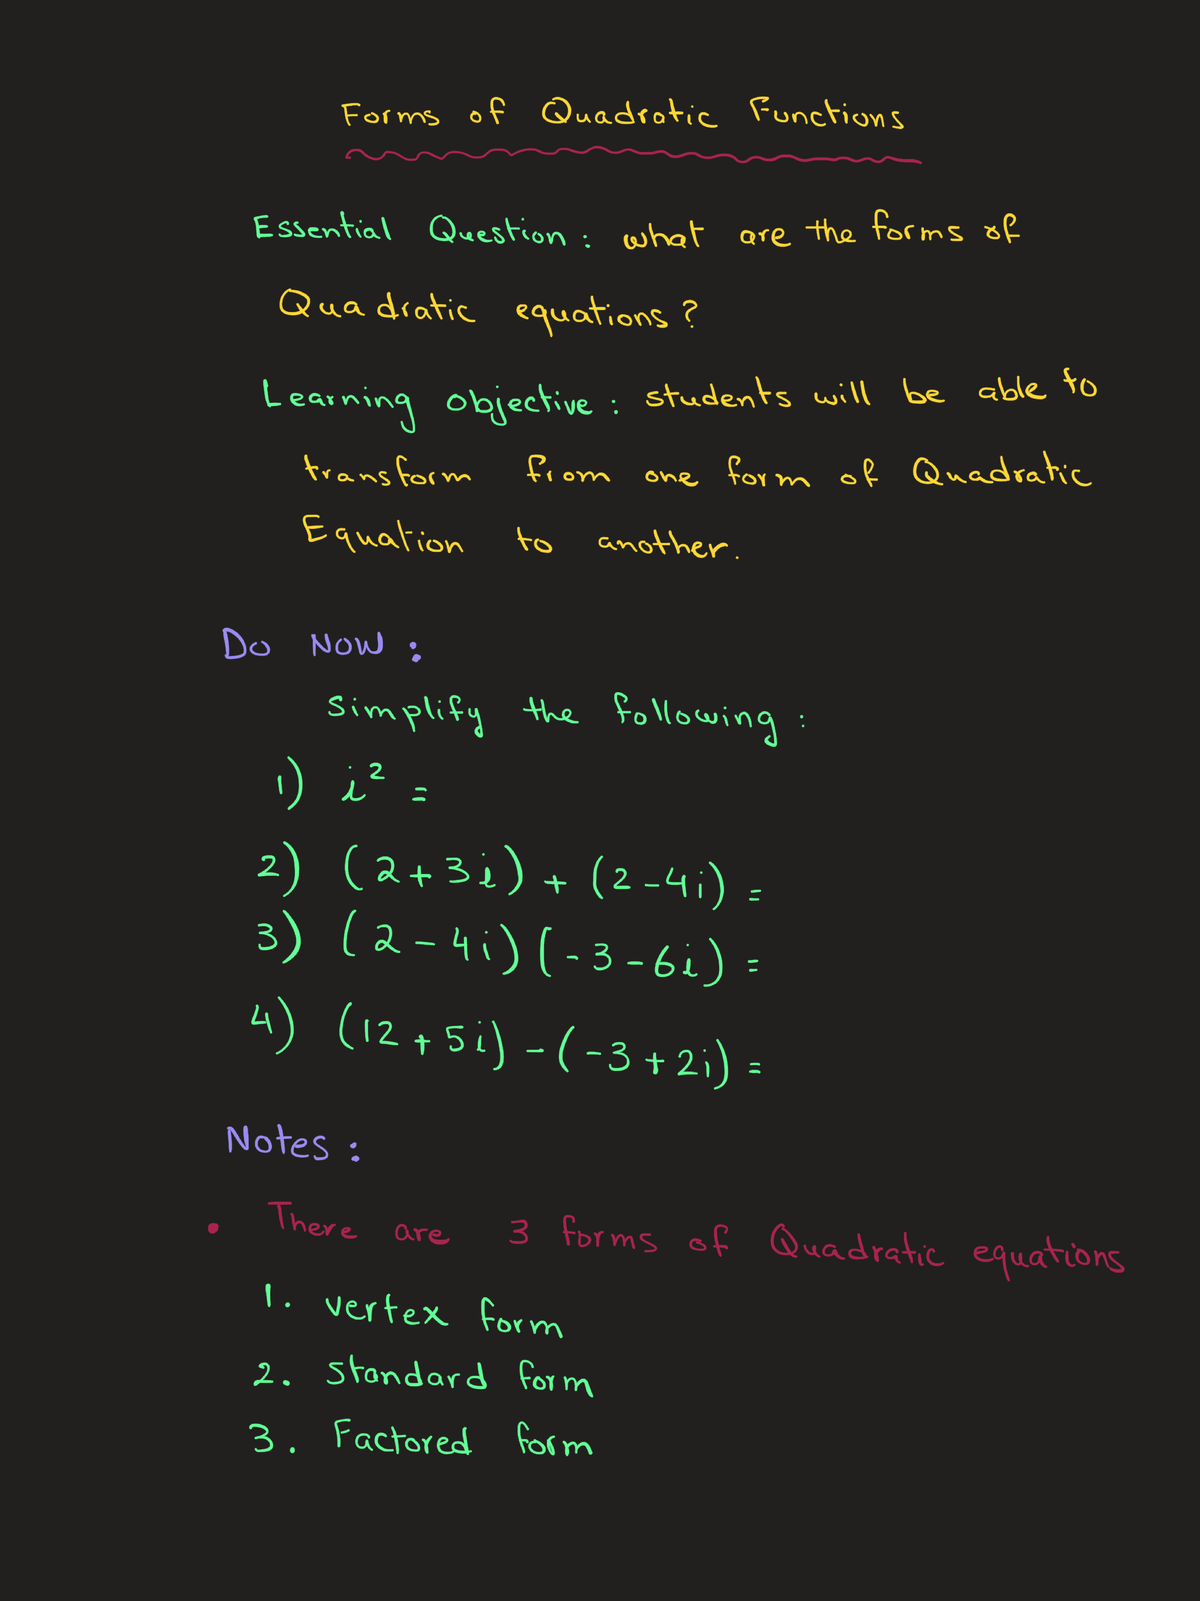 Forms of Quadratic Functions
Essential Question : what are the forms of
Quadratic equations ?
Learning objective : students will be able to
transform from one form of Quadratic
Equation to another.
Do Now :
Simplify the following :
1) i² =
2) (2+3i) + (2-4i) =
3) (2-4i)(-3-6i) =
4) (12+5i) - (-3+2i) =
Notes :
• There are 3 forms of Quadratic equations
1. vertex form
2. standard form
3. Factored form